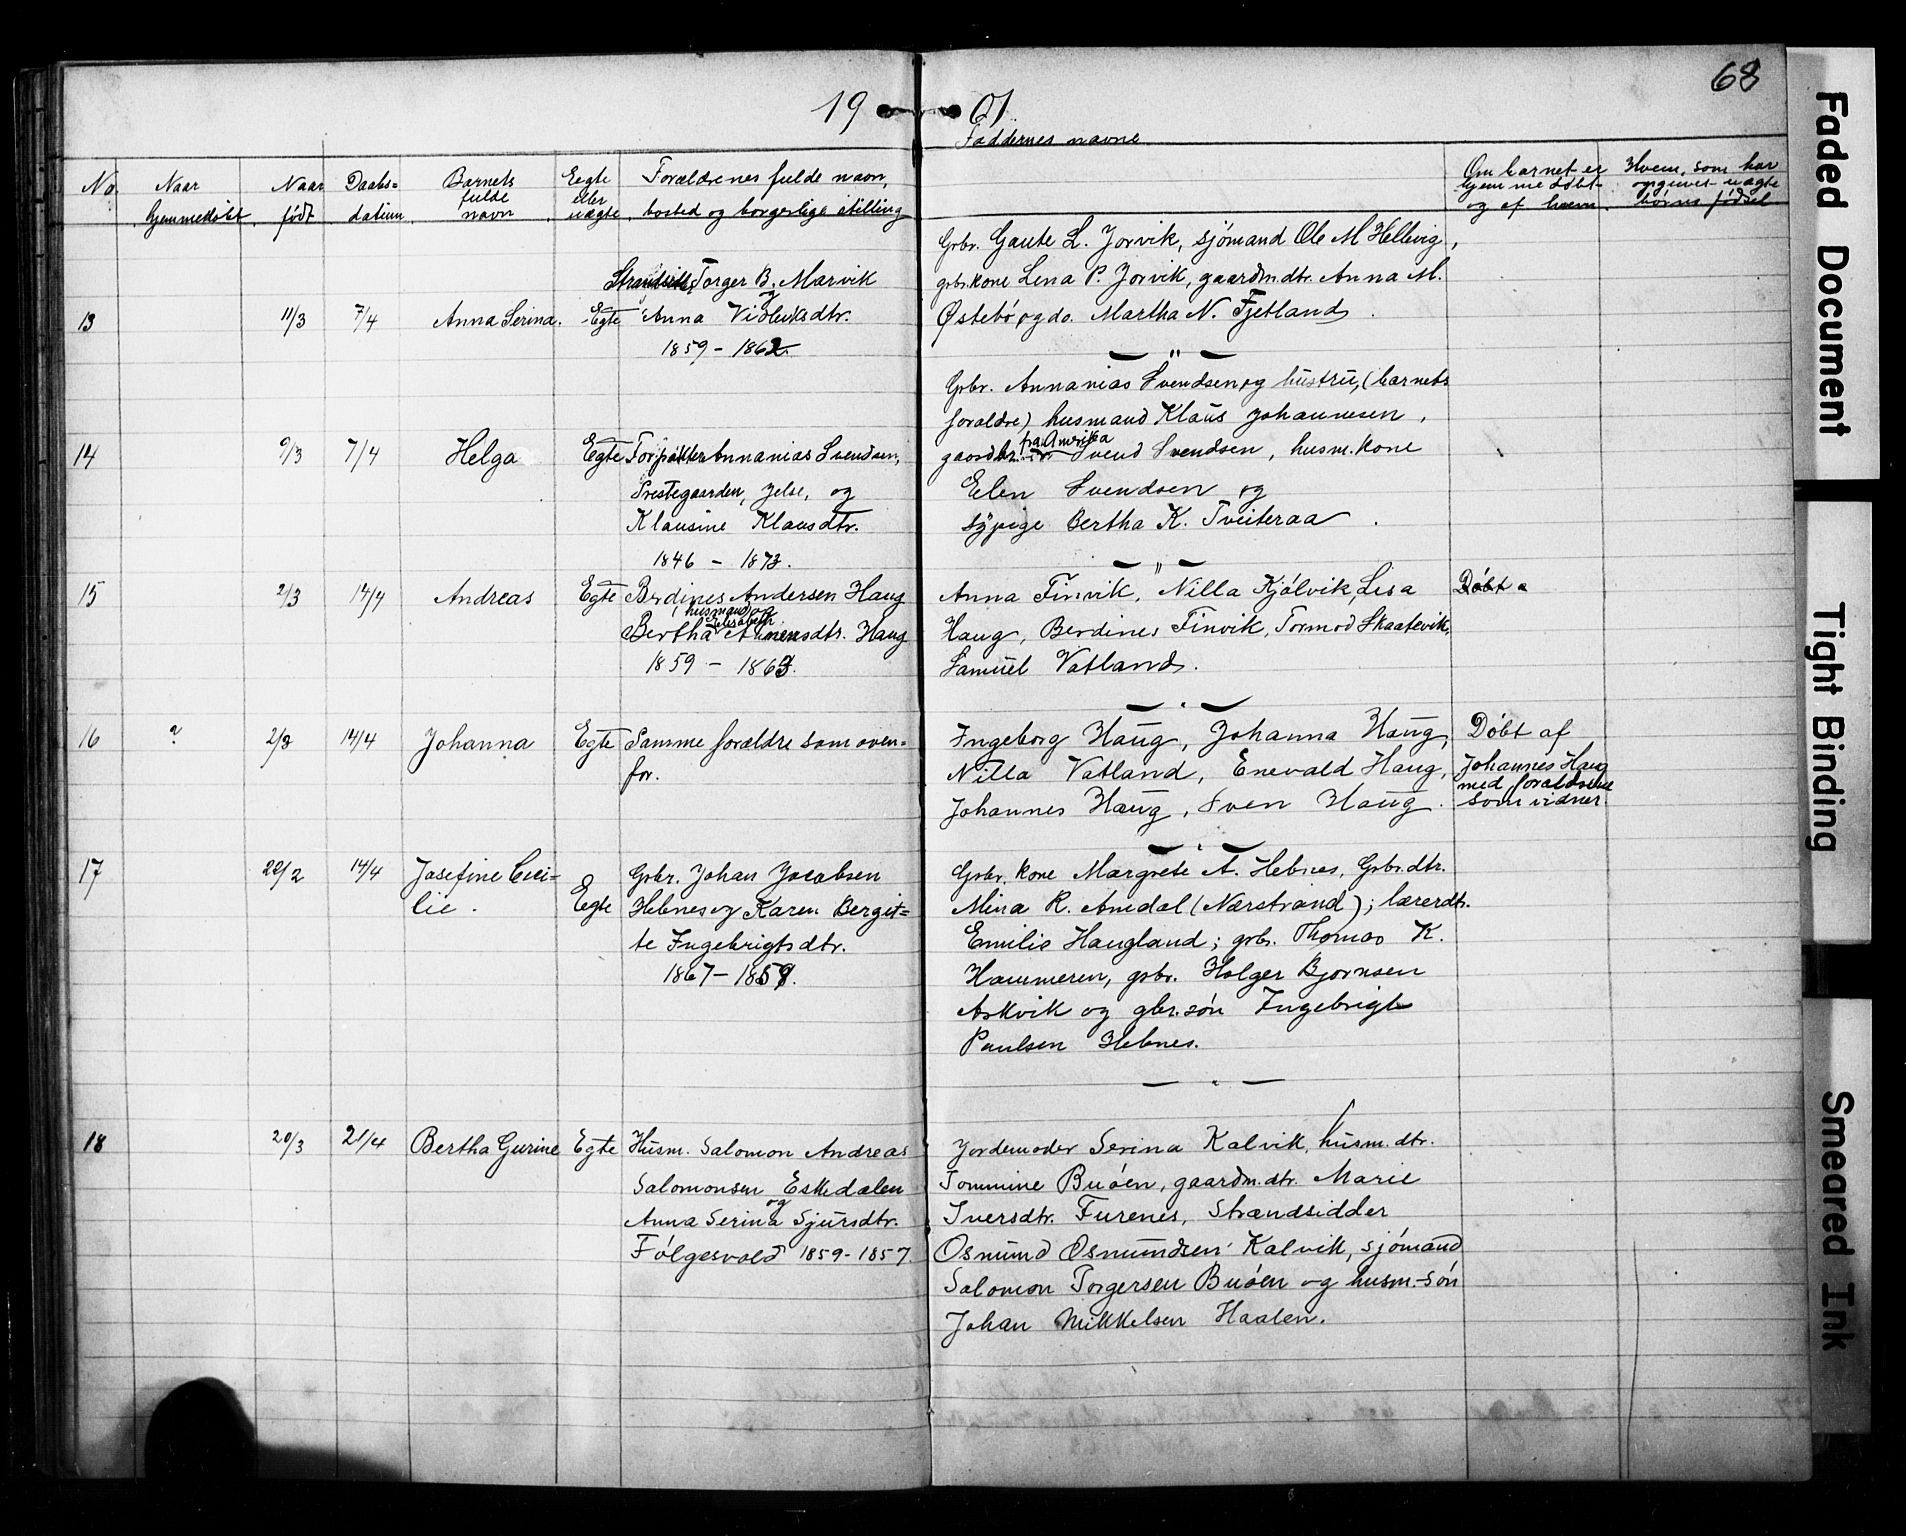 68
19 01
Faddernes navne
No.
Naar hjemmedøbt.
Naar født
Daabs=
datum
Barnets
fulde
navn
Egte
eller
uægte
Forældrenes fulde navn,
bosted og borgerlige stilling
Om barnet er
hjemmedøbt
og af hvem.
Hvem, som har
opgivet uægte
børns fødsel
13
11/3
7/4
Anna Serina.
Egte
Strandsidder Torger B. Marvik
og
Anna Vidleiksdtr.
1859 - 1862.
Grbr. Gaute L. Jorvik, sjömand Ole M Hellvig,
grbr.kone Lena P. Jorvik, gaardm.dtr. Anna M.
Østebö og do. Martha N. Fjetland.
— " —
14
9/3
7/4
Helga
Egte
Forpakter Annanias Svendsen,
Prestegaarden, Jelse, og
Klausine Klausdtr.
1846 - 1873.
Grbr. Annanias Svendsen og hustru, (barnets
foraldre) husmand Klaus Johannesen,
fra Amerika
gaardbr. Svend Svendsen, husm.kone
Elen Svendsen og
sypige Bertha K. Tveiteraa.
— " —
15
2/3
14/4
Andreas
Egte
Berdines Andersen Haug
husmand og
Elisabeth
Bertha Amensdtr. Haug
1859 - 1863.
Anna Finvik, Nilla Kjölvik, Lisa
Haug, Berdines Finvik, Tormod Skaatevik,
Samuel Vatland.
Döbt a
— " —
16
?
2/3
14/4
Johanna
Egte
Samme foraldre som oven=
for.
Ingeborg Haug, Johanna Haug,
Nilla Vatland, Enevald Haug,
Johannes Haug, Sven Haug.
Döbt af
Johannes Haug
med foraldrene
som vidner.
— " —
17
22/2
14/4
Josefine Ceci=
lie.
Egte
Grbr. Johan Jacobsen
Hebnes og Karen Bergit=
te Ingebrigtsdtr.
1867 - 1859.
Grbr. kone Margrete A. Hebnes, Grbr.dtr.
Mina R. Amdal (Nærstrand); lærerdt.
Emilie Haugland; grbr. Thomas K.
Hammeren, grbr. Holger Bjornsen
Askvik og gbr.sön Ingebrigt
Paulsen Hebnes.
— " —
18
20/3
21/4
Bertha Gurine
Egte
Husm. Salomon Andreas
Salomonsen Eskedalen
og
Anna Serina Sjursdtr.
Fölgesvold 1859 - 1857.
Jordemoder Serina Kalvik, husm.dtr.
Tommine Buöen, gaardm.dtr. Marie
Iversdtr. Furenes, Strandsidder
Osmund Osmundsen Kalvik, sjömand
Salomon Torgersen Buöen og husm.-sön
Johan Mikkelsen Haalen.
Faded Document
Tight Binding
Smeared Ink